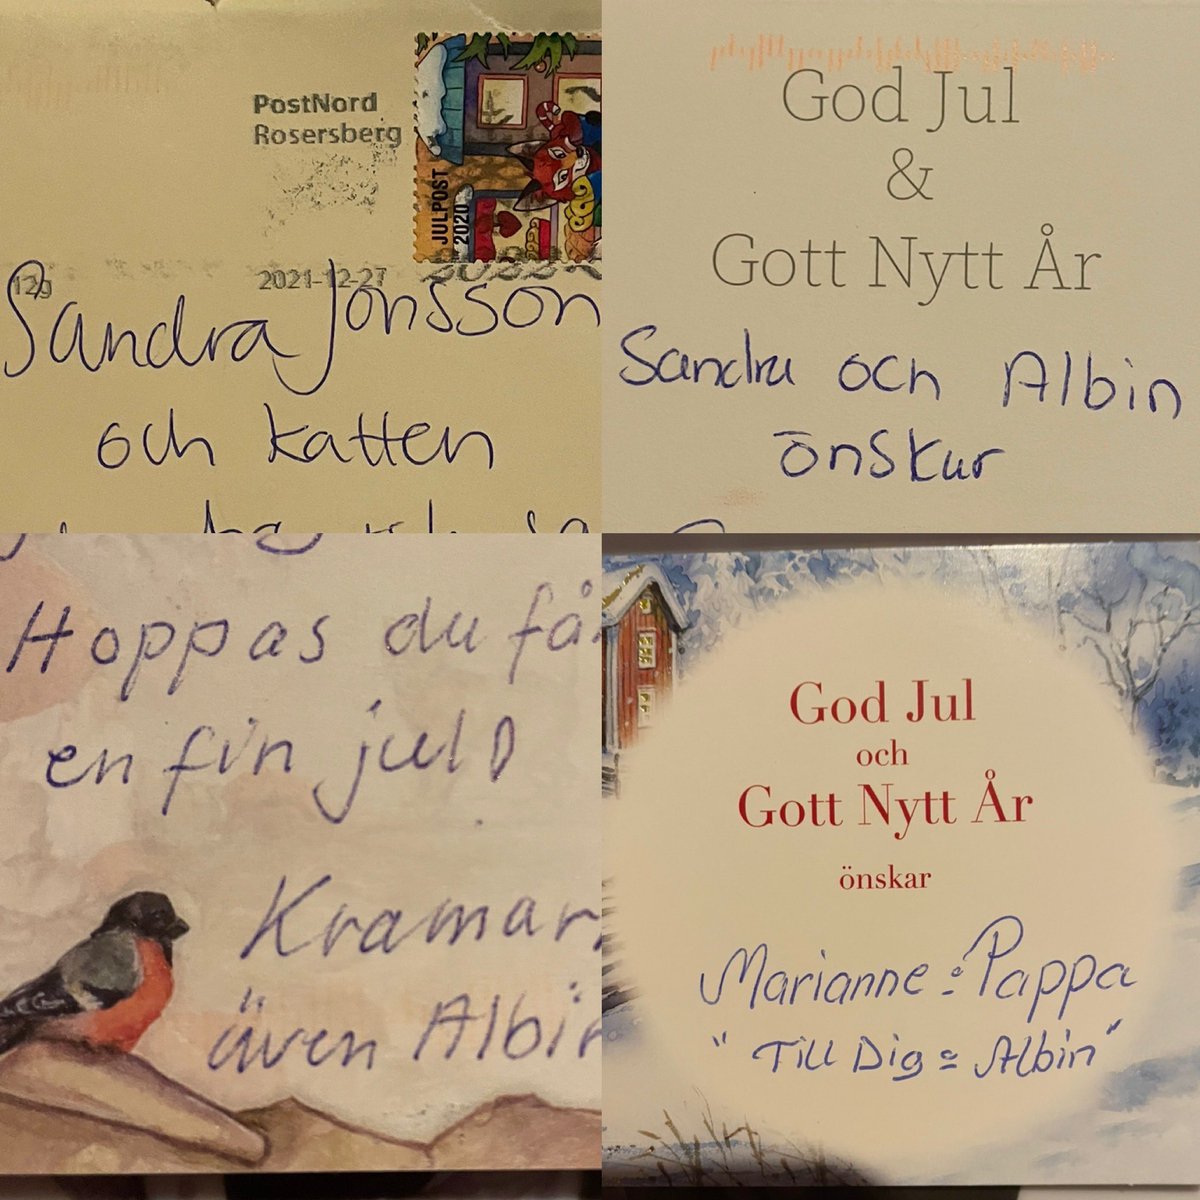 PostNord
Rosersberg
JULPOST
2020
12g
2021-12-27
Sandra Jonsson
och katten
God Jul
&
Gott Nytt År
Sandra och Albin
önskar
Hoppas du få
en fin jul!
Kramar,
även Albin
God Jul
och
Gott Nytt År
önskar
Marianne o Pappa
"Till Dig o Albin"